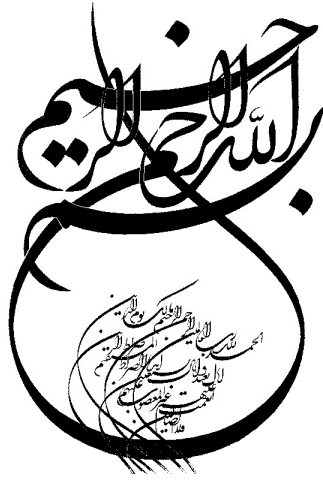 بسم الله الرحمن الرحيم
الحمد لله رب العالمين الرحمن الرحيم مالك يوم الدين
اياك نعبد و اياك نستعين اهدنا الصراط المستقيم
صراط الذين انعمت عليهم غير المغضوب عليهم
ولا الضالين